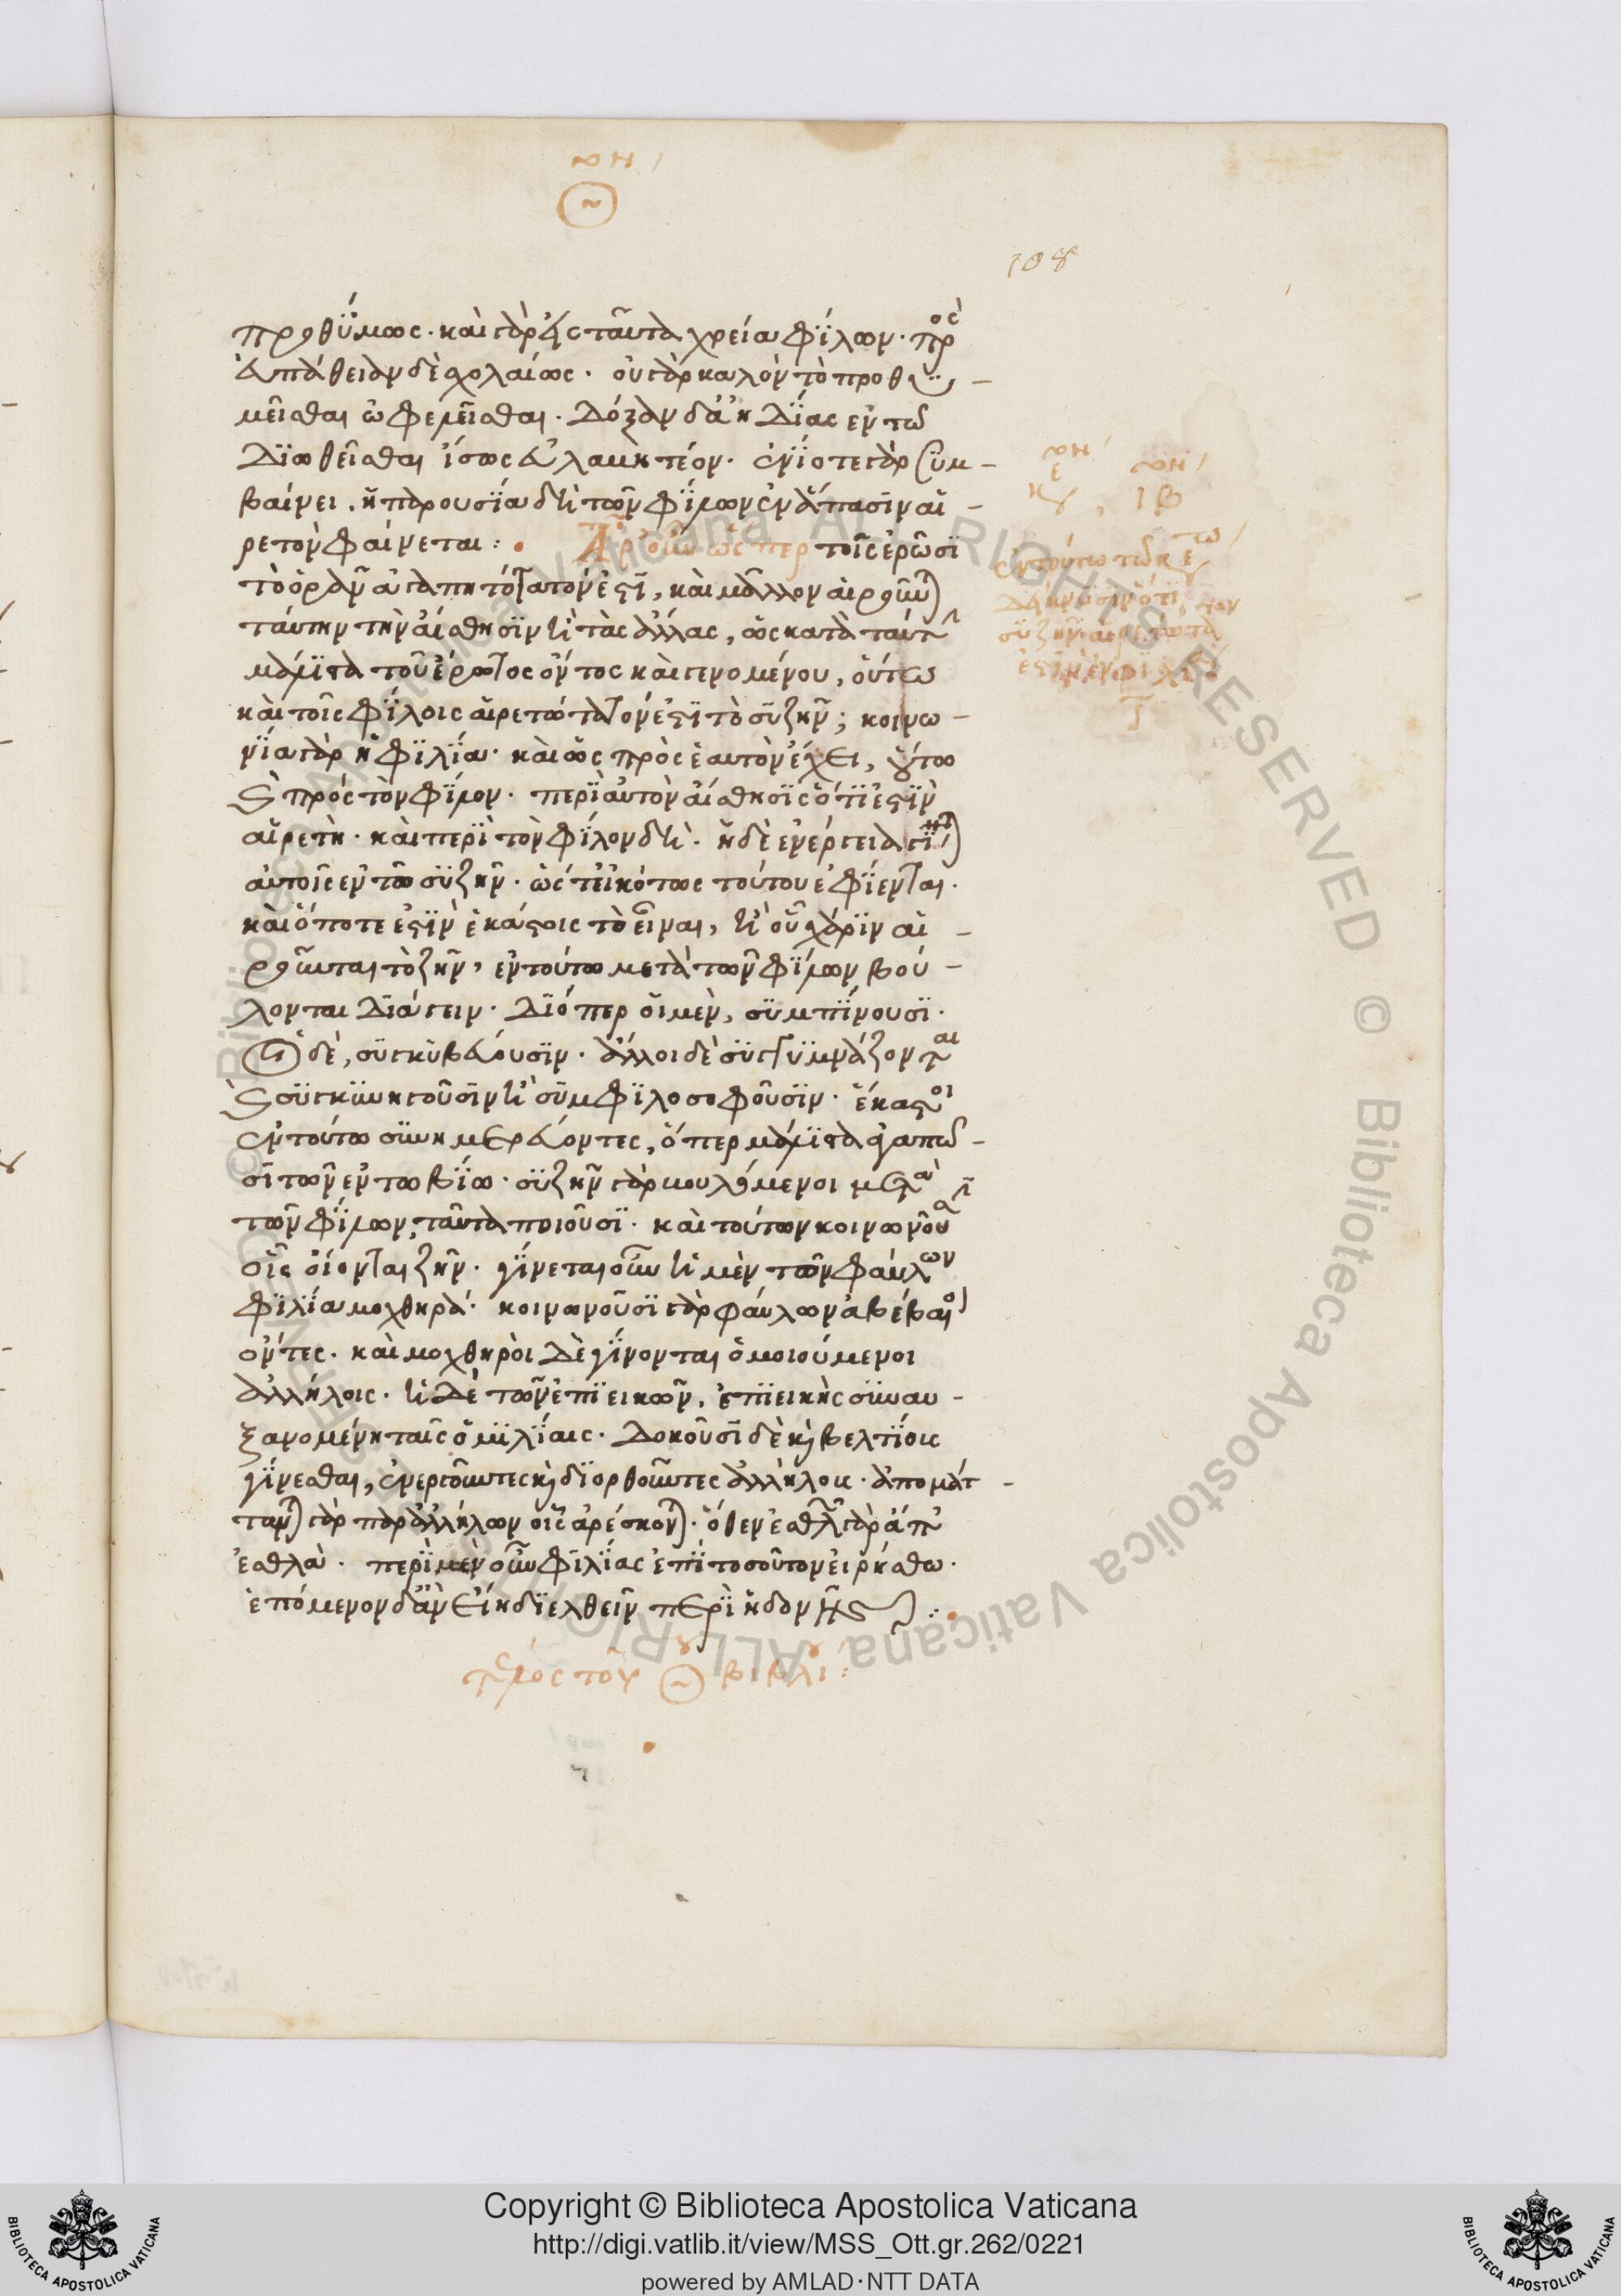 108
προθύμως· καὶ γὰρ εἰς ταῦτα χρεία φίλων· πρὸς
ἀπάθειαν δὲ σχολαίως· οὐ γὰρ καλὸν τὸ προθυ -
μεῖσθαι ὠφελεῖσθαι· δόξαν δ' ἀηδίας ἐν τῶ
διωθεῖσθαι ἴσως εὐλαβητέον· ἐνίοτε γὰρ συμ -
βαίνει. ἡ παρουσία δὴ τῶν φίλων ἐν ἅπασιν αἱ -
ρετὸν φαίνεται: Ἆρ' οὖν ὥσπερ τοῖς ἐρῶσι
τὸ ὁρᾶν ἀγαπητότατόν ἐστι, καὶ μᾶλλον αἱροῦνται
ταύτην τὴν αἴσθησιν ἢ τὰς ἄλλας, ὡς κατὰ ταύτην
μάλιστα τοῦ ἔρωτος ὄντος καὶ γινομένου, οὕτω
καὶ τοῖς φίλοις αἱρετώτατόν ἐστι τὸ συζῆν; κοινω -
νία γὰρ ἡ φιλία· καὶ ὡς πρὸς ἑαυτὸν ἔχει, οὕτω
καὶ πρὸς τὸν φίλον· περὶ αὐτὸν αἴσθησις ὅτι ἐστὶν
αἱρετή· καὶ περὶ τὸν φίλον δή· ἡ δὲ ἐνέργεια γίνεται
αὐτοῖς ἐν τῶ συζῆν· ὥστ' εἰκότως τούτου ἐφίενται·
καὶ ὅ ποτε ἐστὶν ἑκάστοις τὸ εἶναι, ἢ οὗ χάριν αἱ -
ροῦνται τὸ ζῆν, ἐν τούτω μετὰ τῶν φίλων βού -
λονται διάγειν· διόπερ οἱ μὲν, συμπίνουσι·
οἱ δὲ, συγκυβεύουσιν· ἄλλοι δὲ συγγυμνάζονται
καὶ συγκυνηγοῦσιν ἢ συμφιλοσοφοῦσιν· ἕκαστοι
ἐν τούτω συνημερεύοντες, ὅπερ μάλιστα ἀγαπῶ -
σι τῶν ἐν τῶ βίω· συζῆν γὰρ βουλόμενοι μετὰ
τῶν φίλων, ταῦτα ποιοῦσι· καὶ τούτων κοινωνοῦσι
οἷς οἴονται ζῆν· γίνεται οὖν ἡ μὲν τῶν φαύλων
φιλία μοχθηρά· κοινωνοῦσι γὰρ φαύλων ἀβέβαιοι
ὄντες· καὶ μοχθηροὶ δὲ γίνονται ὁμοιούμενοι
ἀλλήλοις· ἡ δὲ τῶν ἐπιεικῶν, ἐπιεικὴς συναυ -
ξανομένη ταῖς ὁμιλίαις· δοκοῦσι δὲ καὶ βελτίους
γίνεσθαι, ἐνεργοῦντες καὶ διορθοῦντες ἀλλήλους· ἀπομάτ -
τονται γὰρ παρ' ἀλλήλων οἷς ἀρέσκονται· ὅθεν ἐσθλῶν γὰρ ἄπ'
ἐσθλά· περὶ μὲν οὖν φιλίας ἐπὶ τοσοῦτον εἰρήσθω·
ἑπόμενον δ' ἂν εἴη διελθεῖν περὶ ἡδονῆς :
τέλος τοῦ βιβλίου:
Copyright © Biblioteca Apostolica Vaticana
http://digi.vatlib.it/view/MSS_Ott.gr.262/0221
powered by AMLAD·NTT DATA